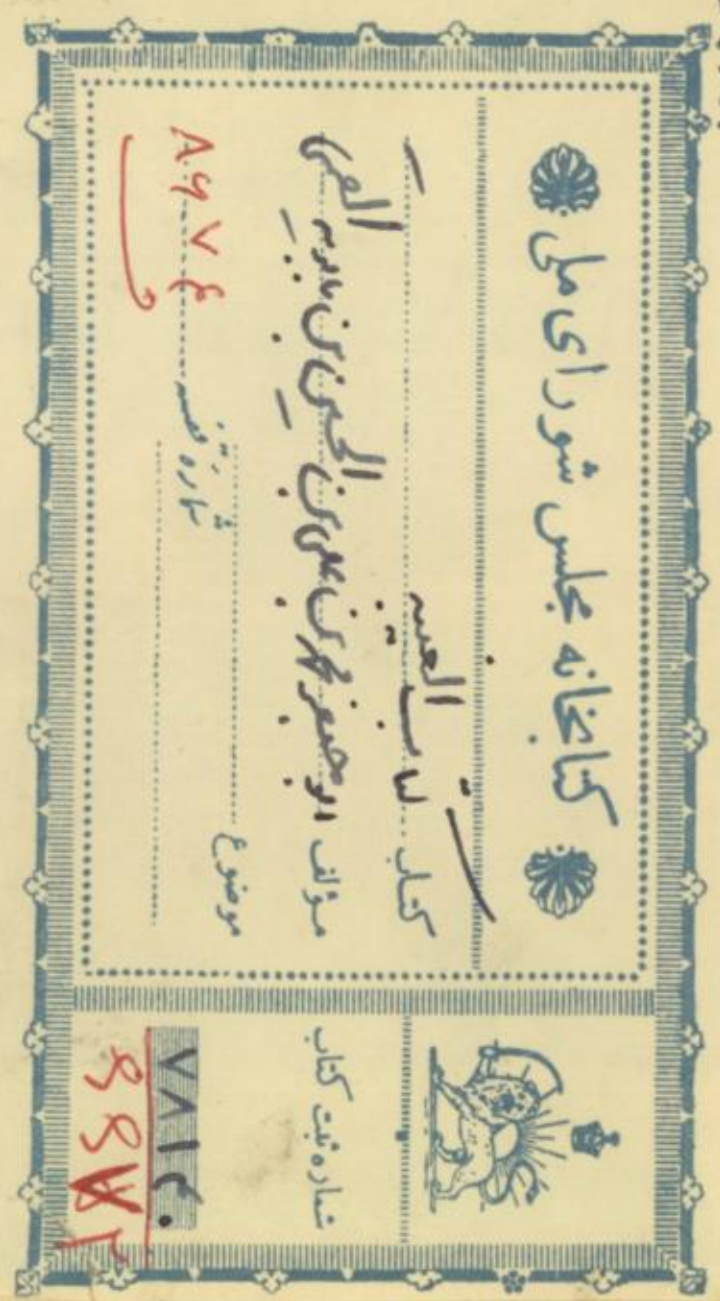 كتابخانه مجلس شورای ملی
كتاب كتاب الغيبة
مؤلف ابو جعفر محمد بن علی بن الحسین بن بابویه القمی
موضوع
شماره قفسه ۸۶۷۴
شماره ثبت كتاب
۷۸۱۴۰